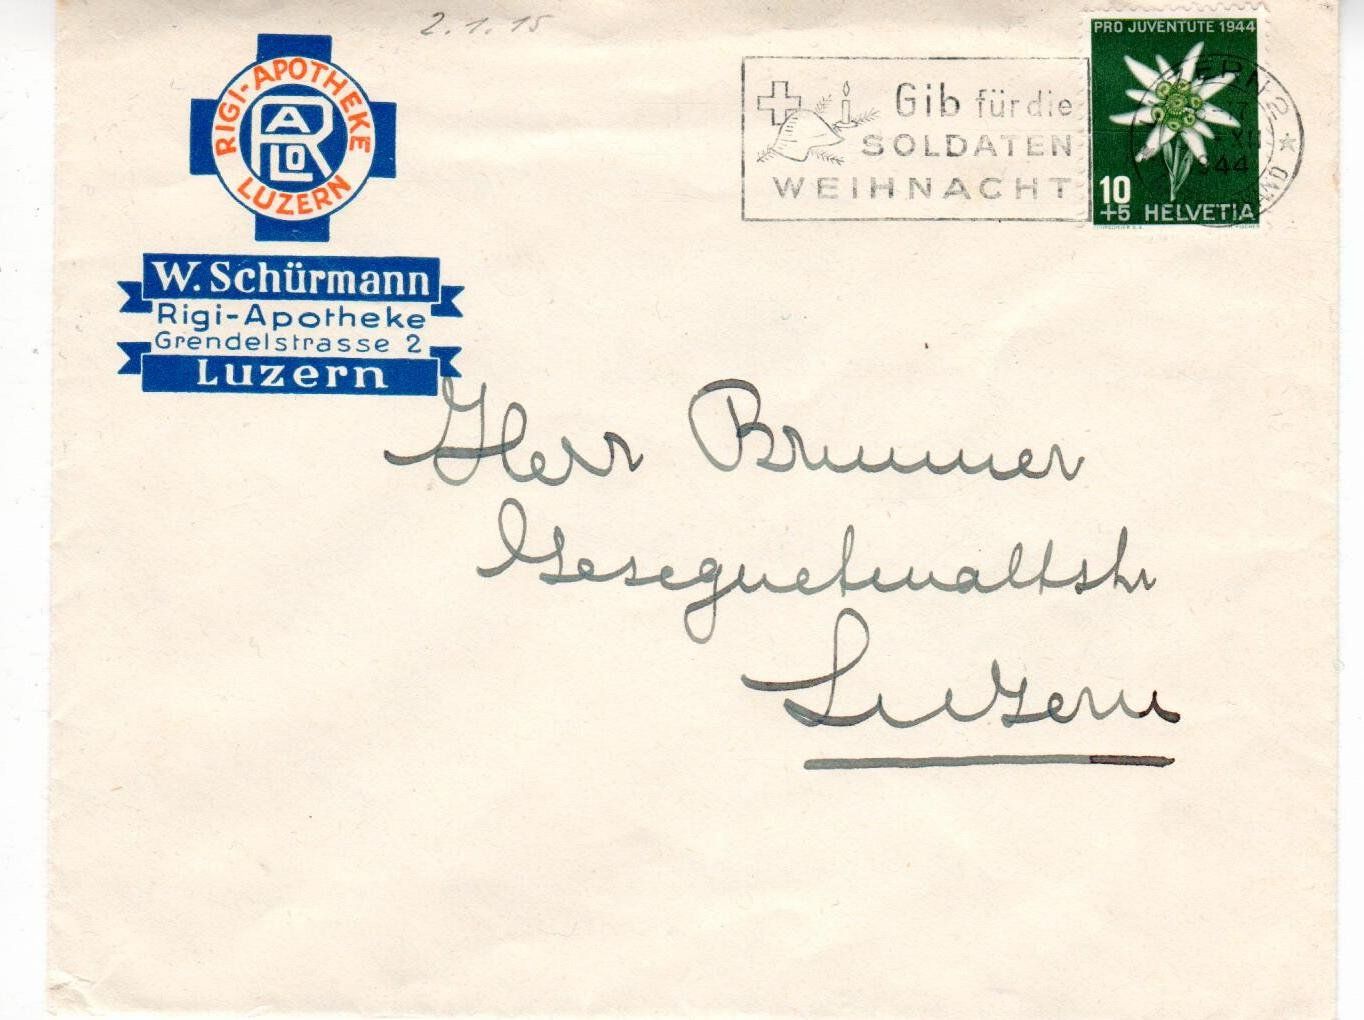 2.1.15
RIGI-APOTHEKE
LUZERN
W. Schürmann
Rigi-Apotheke
Grendelstrasse 2
Luzern
Gib für die
SOLDATEN
WEIHNACHT
PRO JUVENTUTE 1944
10
+5 HELVETIA
Herr Brunner
Luzern